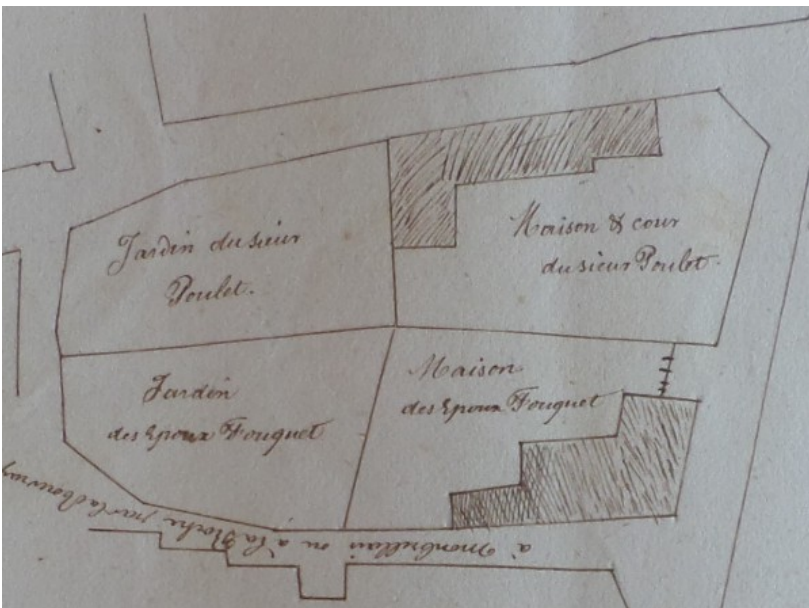 Jardin du sieur
Poulet.
Maison & cour
du sieur Poulet.
Jardin
des Epoux Fouquet
Maison
des Epoux Fouquet
à ou à la Roche par la